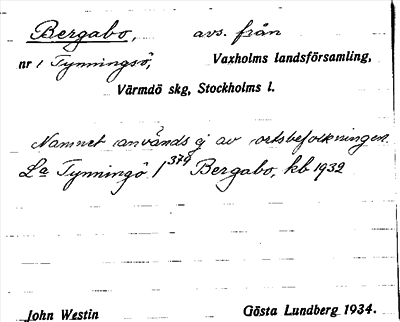 Bergabo, avs. från
nr 1 Tynningsö, Vaxholms landsförsamling,
Värmdö skg, Stockholms l.
Namnet används ej av ortsbefolkningen.
La Tynningö 1³⁷⁹ Bergabo, kb 1932
John Westin Gösta Lundberg 1934.